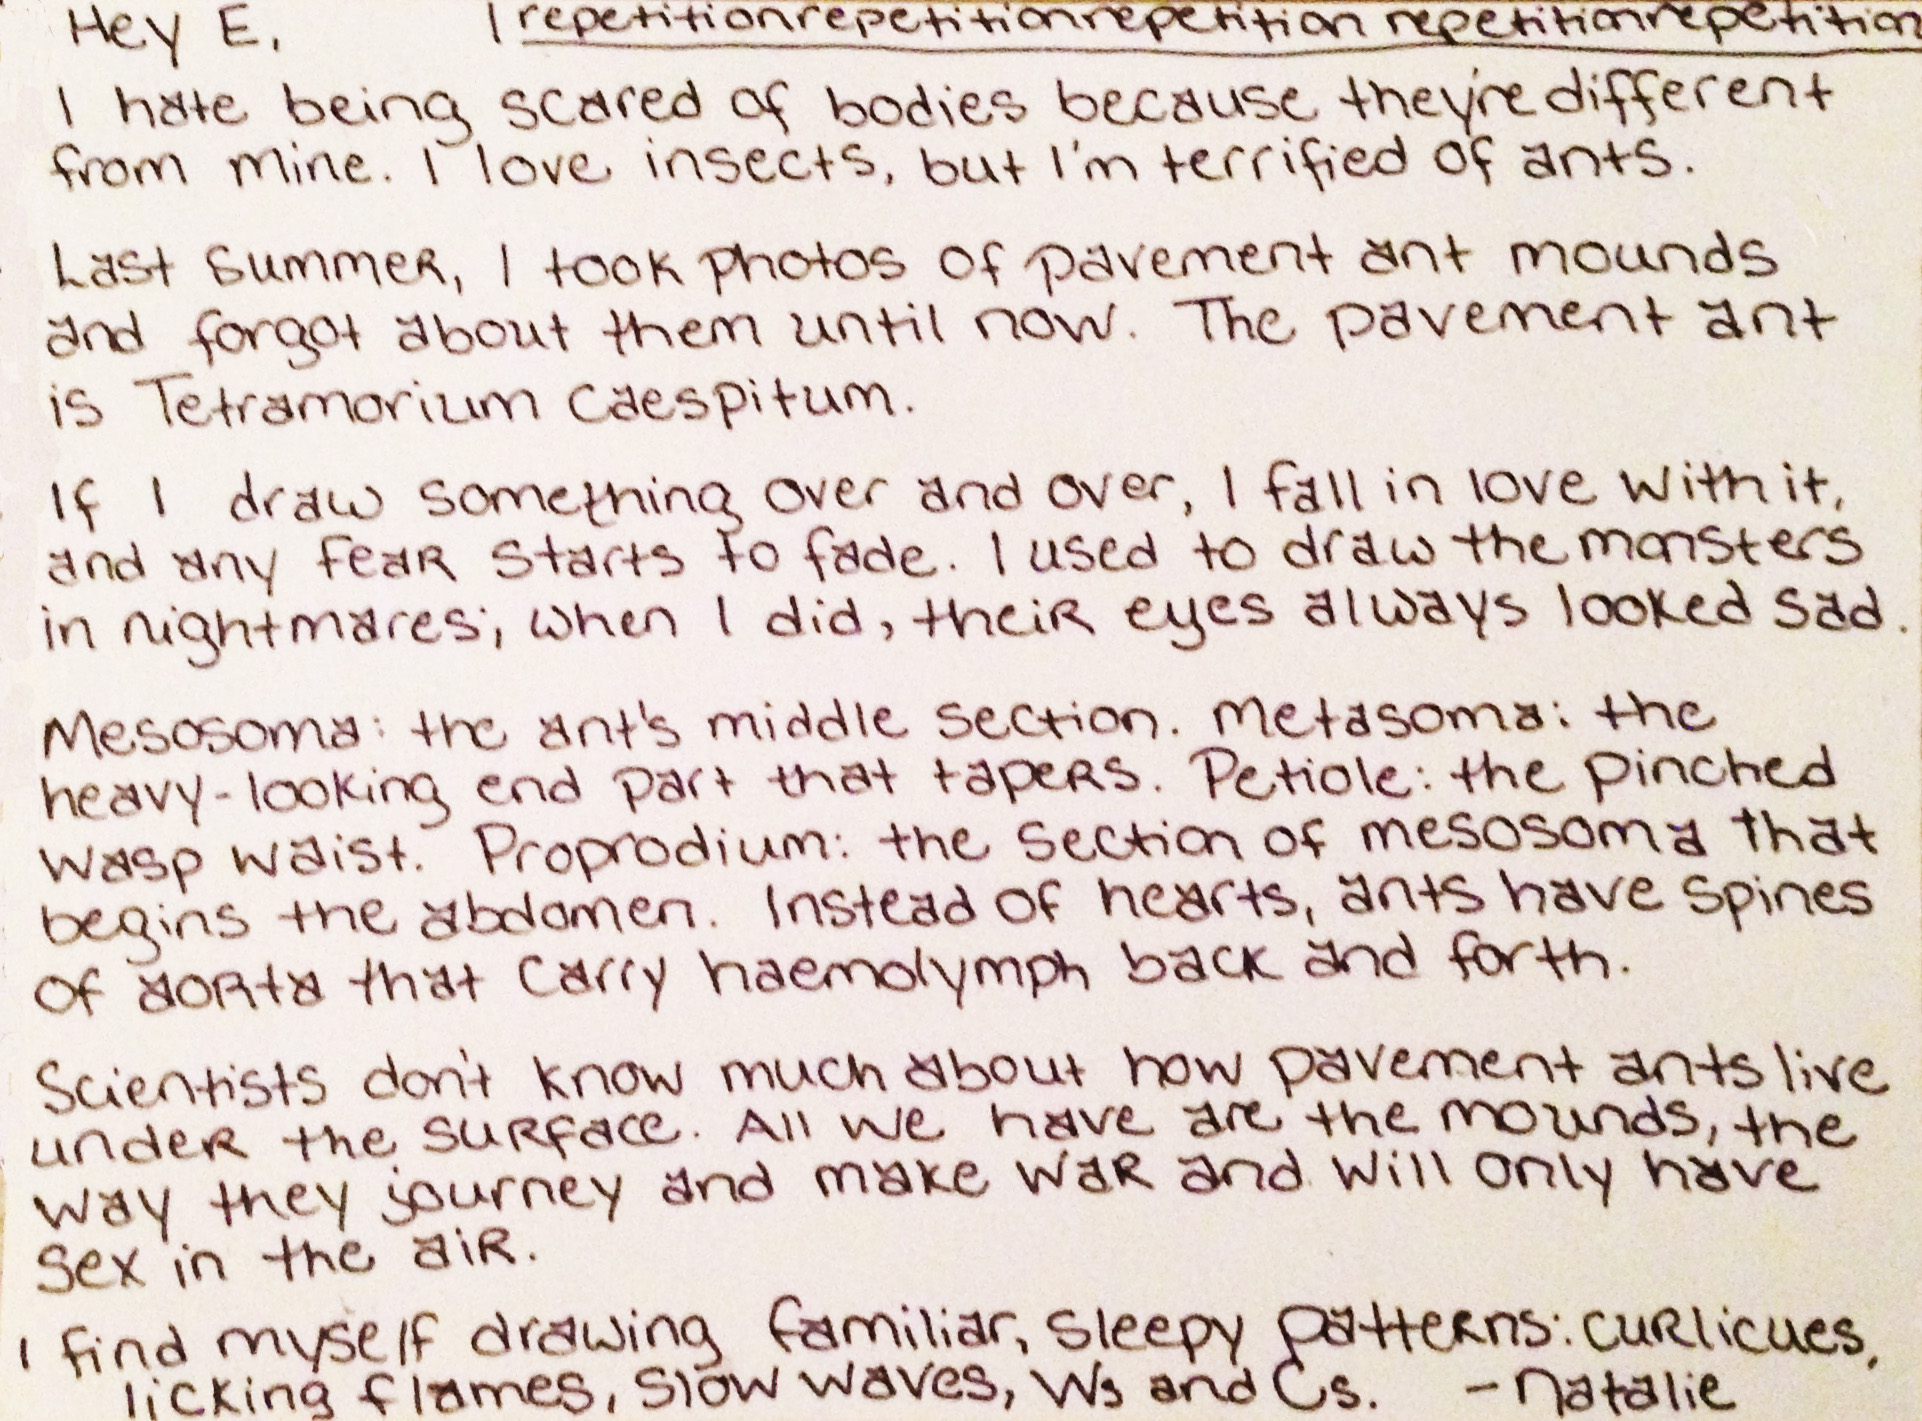 Hey E, repetitionrepetitionrepetition repetitionrepetition
I hate being scared of bodies because they're different
from mine. I love insects, but I'm terrified of ants.
Last summer, I took photos of pavement ant mounds
and forgot about them until now. The pavement ant
is Tetramorium caespitum.
If I draw something over and over, I fall in love with it,
and any fear starts to fade. I used to draw the monsters
in nightmares; when I did, their eyes always looked sad.
Mesosoma: the ant's middle section. Metasoma: the
heavy-looking end part that tapers. Petiole: the pinched
wasp waist. Proprodium: the section of mesosoma that
begins the abdomen. Instead of hearts, ants have spines
of aorta that carry haemolymph back and forth.
Scientists don't know much about how pavement ants live
under the surface. All we have are the mounds, the
way they journey and make war and will only have
sex in the air.
I find myself drawing familiar, sleepy patterns: curlicues,
licking flames, slow waves, Ws and Cs. -Natalie